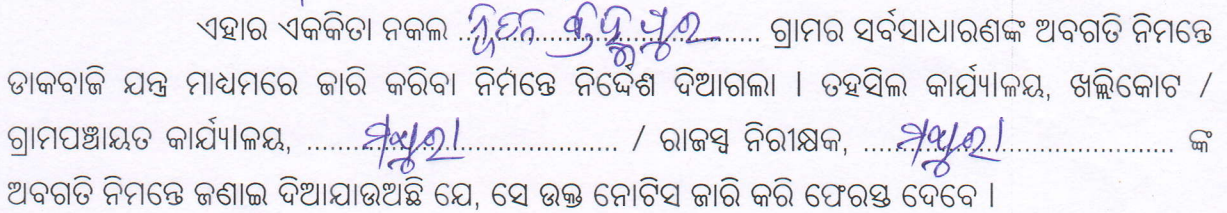 ଏହାର ଏକକିତା ନକଲ .............................. ଗ୍ରାମର ସର୍ବସାଧାରଣଙ୍କ ଅବଗତି ନିମନ୍ତେ
ଡାକବାଜି ଯନ୍ତ୍ର ମାଧ୍ୟମରେ ଜାରି କରିବା ନିର୍ମନ୍ତେ ନିର୍ଦ୍ଦେଶ ଦିଆଗଲା । ତହସିଲ କାର୍ଯ୍ୟାଳୟ, ଖଲ୍ଲିକୋଟ /
ଗ୍ରାମପଞ୍ଚାୟତ କାର୍ଯ୍ୟାଳୟ, ...... ମଥୁରା ...................... / ରାଜସ୍ୱ ନିରୀକ୍ଷକ, .... ମଥୁରା ...................... ଙ୍କ
ଅବଗତି ନିମନ୍ତେ ଜଣାଇ ଦିଆଯାଉଅଛି ଯେ, ସେ ଉକ୍ତ ନୋଟିସ ଜାରି କରି ଫେରସ୍ତ ଦେବେ ।